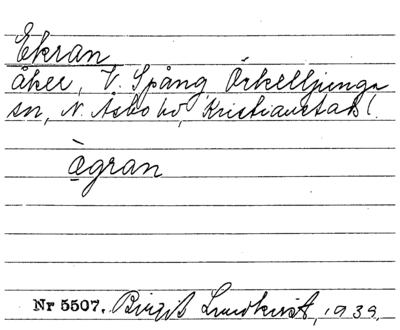 Ekran
åker, V. Spång Örkelljunga
sn, N. Åsbo hd, Kristianstads l.
àgran
Nr 5507. Birgit Lundkvist, 1939.